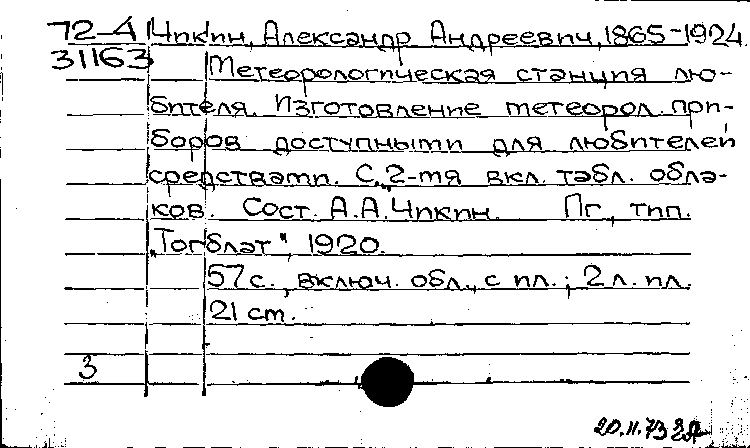 72-4 Чикин, Александр Андреевич, 1865-1924
31163
Метеорологическая станция лю-
бителя. Изготовление метеорол. при-
боров доступными для любителей
средствами. С 2-мя вкл. табл. обла-
ков. Сост. А.А.Чикин. Пг., тип.
"Тогблат", 1920.
57 с., включ. обл., с ил.; 2 л. ил.
21 см.
3
20.11.73